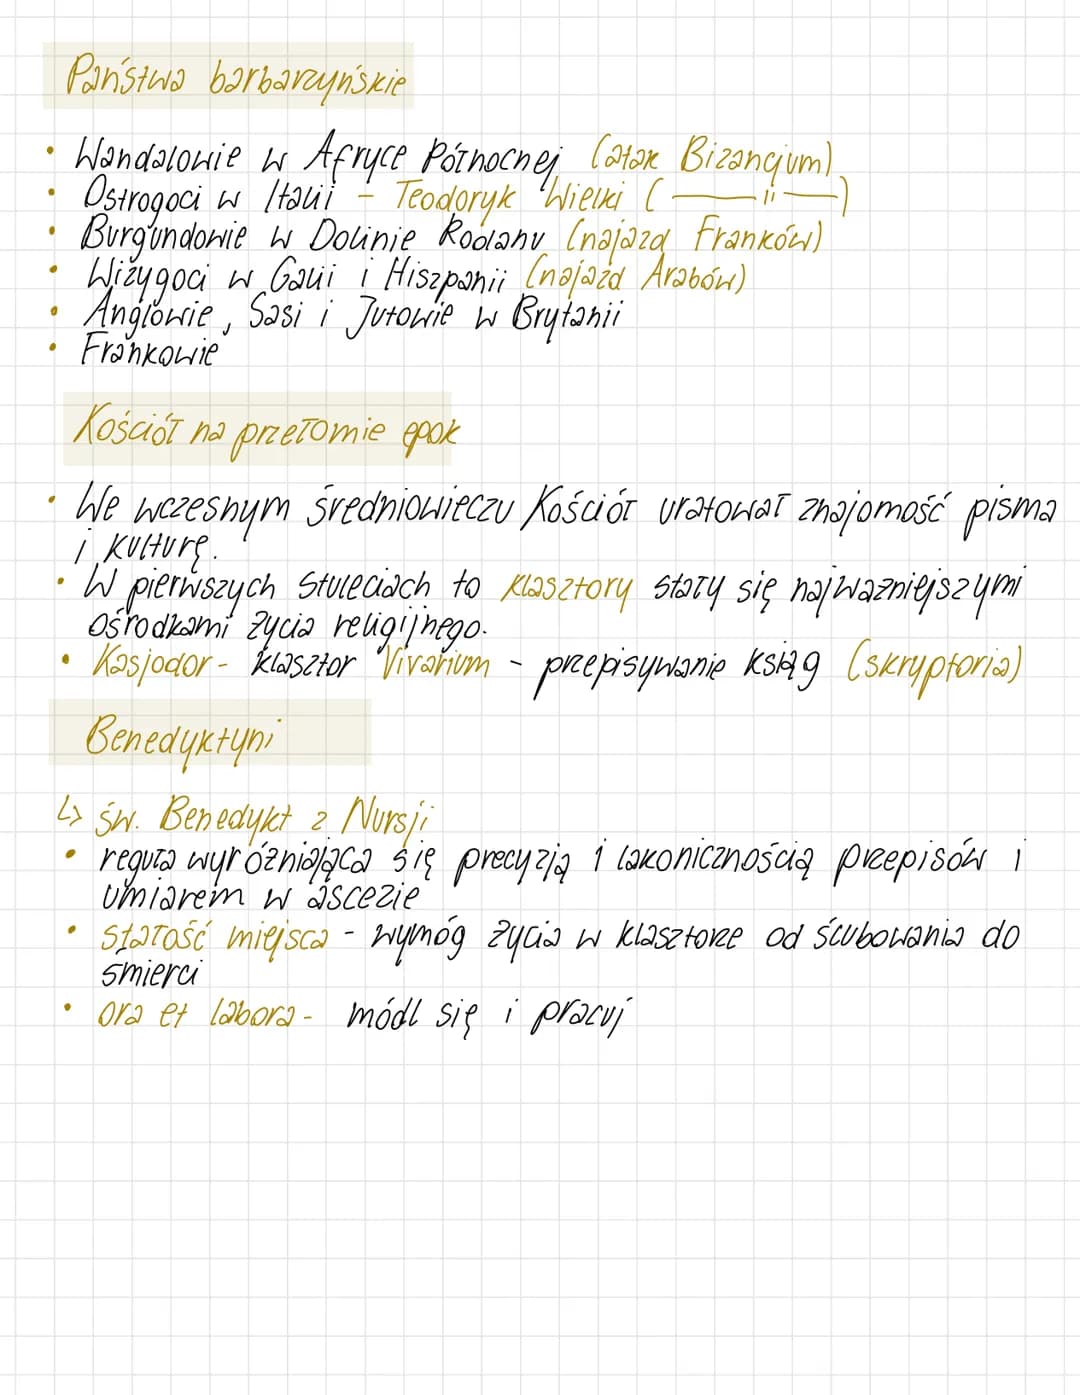 Państwa barbarzyńskie
• Wandalowie w Afryce Północnej (atak Bizancjum)
• Ostrogoci w Italii - Teodoryk Wielki ( —— 11 —— )
• Burgundowie w Dolinie Rodanu (najazd Franków)
• Wizygoci w Galii i Hiszpanii (najazd Arabów)
• Anglowie, Sasi i Jutowie w Brytanii
• Frankowie
Kościół na przełomie epok
• We wczesnym średniowieczu Kościół uratował znajomość pisma
i kulturę.
• W pierwszych stuleciach to klasztory stały się najważniejszymi
ośrodkami życia religijnego.
• Kasjodor - klasztor Vivarium - przepisywanie ksiąg (skryptoria)
Benedyktyni
↳ św. Benedykt z Nursji
• reguła wyróżniająca się precyzją i lakonicznością przepisów i
umiarem w ascezie
• stałość miejsca - wymóg życia w klasztorze od ślubowania do
śmierci
• ora et labora - módl się i pracuj